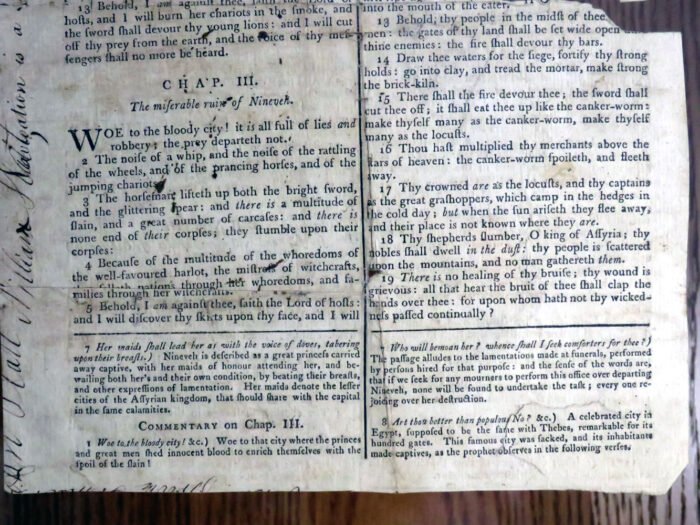 13 Behold, I am againſt thee, ſaith the Lord of
hoſts, and I will burn her chariots in the ſmoke, and
the ſword ſhall devour thy young lions: and I will cut
off thy prey from the earth, and the voice of thy meſ-
ſengers ſhall no more be heard.
CHAP. III.
The miſerable ruin of Nineveh.
WOE to the bloody city! it is all full of lies and
robbery; the prey departeth not.
2 The noiſe of a whip, and the noiſe of the rattling
of the wheels, and of the prancing horſes, and of the
jumping chariots.
3 The horſeman lifteth up both the bright ſword,
and the glittering ſpear: and there is a multitude of
ſlain, and a great number of carcaſes: and there is
none end of their corpſes; they ſtumble upon their
corpſes:
4 Becauſe of the multitude of the whoredoms of
the well-favoured harlot, the miſtreſs of witchcrafts,
nations through her whoredoms, and fa-
milies through her witchcrafts.
5 Behold, I am againſt thee, ſaith the Lord of hoſts:
and I will diſcover thy ſkirts upon thy face, and I will
7 Her maids ſhall lead her as with the voice of doves, tabering
upon their breaſts.) Nineveh is deſcribed as a great princeſs carried
away captive, with her maids of honour attending her, and be-
wailing both her's and their own condition, by beating their breaſts,
and other expreſſions of lamentation. Her maids denote the leſſer
cities of the Aſſyrian kingdom, that ſhould ſhare with the capital
in the ſame calamities.
COMMENTARY on Chap. III.
1 Woe to the bloody city! &c.) Woe to that city where the princes
and great men ſhed innocent blood to enrich themſelves with the
ſpoil of the ſlain!
into the mouth of the eater.
13 Behold, thy people in the midſt of thee
men: the gates of thy land ſhall be ſet wide open
thine enemies: the fire ſhall devour thy bars.
14 Draw thee waters for the ſiege, fortify thy ſtrong
holds: go into clay, and tread the mortar, make ſtrong
the brick-kiln.
15 There ſhall the fire devour thee; the ſword ſhall
cut thee off; it ſhall eat thee up like the canker-worm:
make thyſelf many as the canker-worm, make thyſelf
many as the locuſts.
16 Thou haſt multiplied thy merchants above the
ſtars of heaven: the canker-worm ſpoileth, and fleeth
away.
17 Thy crowned are as the locuſts, and thy captains
as the great graſhoppers, which camp in the hedges in
the cold day; but when the ſun ariſeth they flee away,
and their place is not known where they are.
18 Thy ſhepherds ſlumber, O king of Aſſyria; thy
nobles ſhall dwell in the duſt: thy people is ſcattered
upon the mountains, and no man gathereth them.
19 There is no healing of thy bruiſe; thy wound is
grievous: all that hear the bruit of thee ſhall clap the
hands over thee: for upon whom hath not thy wicked-
neſs paſſed continually?
7 Who will bemoan her? whence ſhall I ſeek comforters for thee?)
The paſſage alludes to the lamentations made at funerals, performed
by perſons hired for that purpoſe: and the ſenſe of the words are,
that if we ſeek for any mourners to perform this office over departing
Nineveh, none will be found to undertake the taſk; every one re-
joicing over her deſtruction.
8 Art thou better than populous No? &c.) A celebrated city in
Egypt, ſuppoſed to be the ſame with Thebes, remarkable for its
hundred gates. This famous city was ſacked, and its inhabitants
made captives, as the prophet obſerves in the following verſes.
Hall William Navigation is a